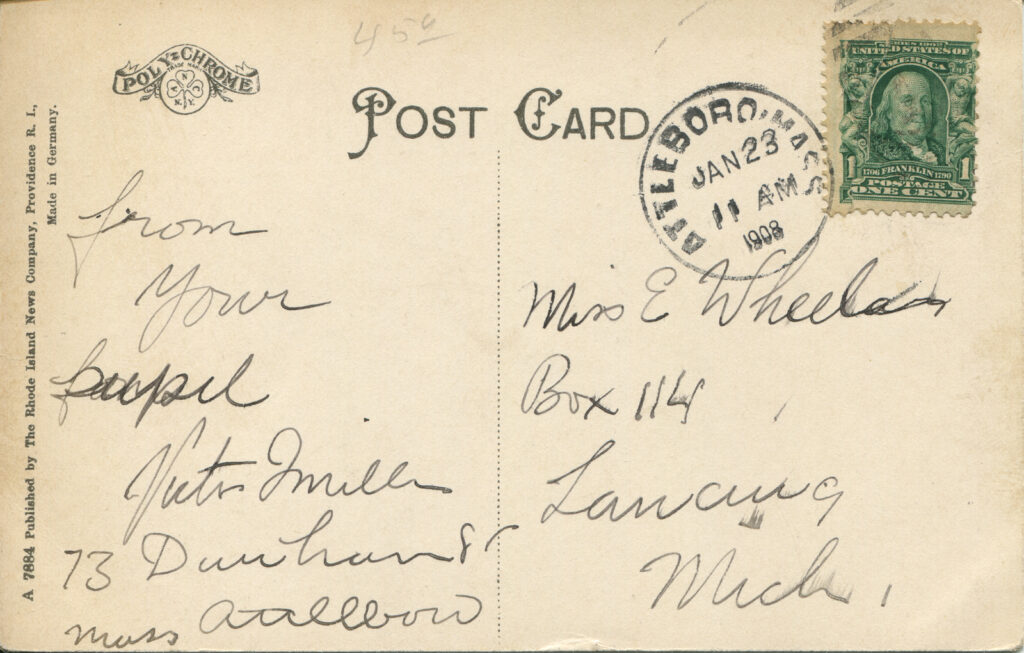 45¢
POLY-CHROME
TRADE MARK
A N C
N.Y.
POST CARD
ATTLEBORO, MASS.
JAN 23
11 AM
1908
SERIES 1902
UNITED STATES OF
AMERICA
1 1706 FRANKLIN 1790 1
POSTAGE
ONE CENT
A 7884 Published by The Rhode Island News Company, Providence R. I.,
Made in Germany.
from
Your
Victor Miller
73 Dunham St
Mass Attleboro
Miss E Wheeler
Box 114
Lancing
Mich.